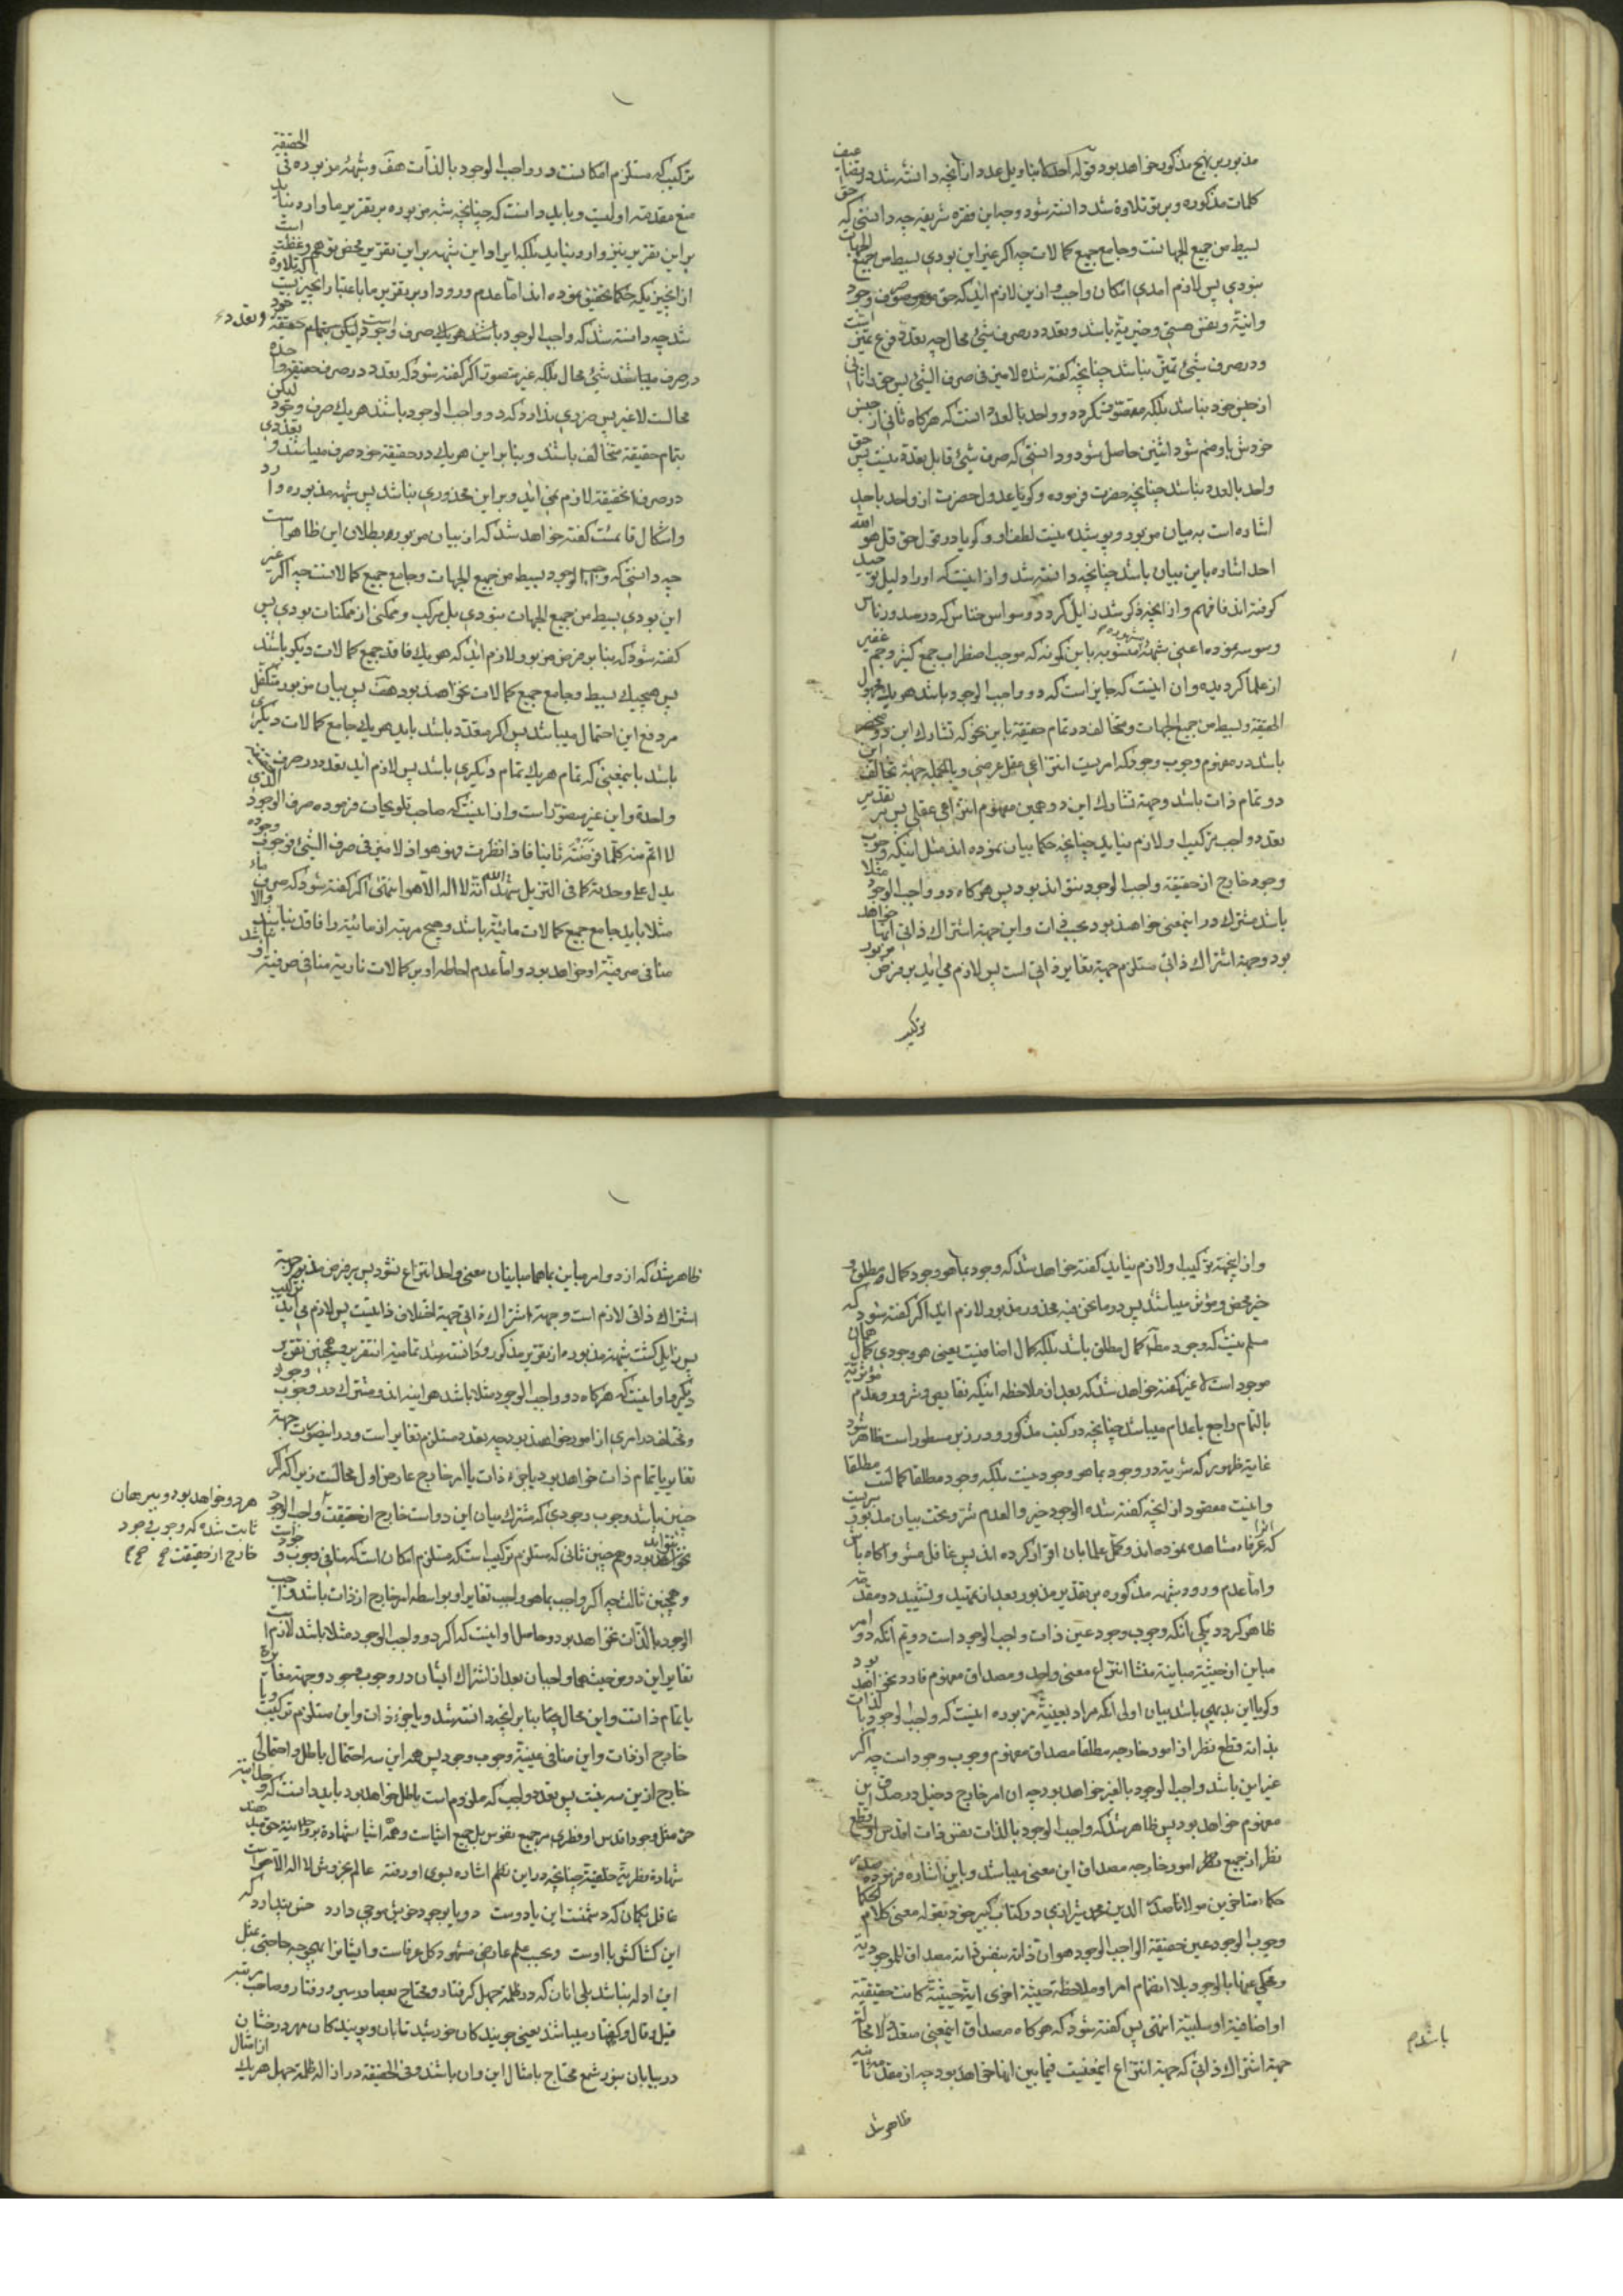 مذبور بر نهج مذكور خواهد بود قوله احد لا بتاويل عدد از انچه دانسته شد در
كلمات مذكوره و بر تو تلاوة شد دانسته شود وجه اين فقره شريفه چه دانستى كه حق
بسيط من جميع الجهاتست و جامع جميع كمالات چه اكر غير اين بودى بسيط من جميع الجهات
نبودى پس لازم امدى امكان واجب و ازين لازم ايد كه حق صرف وجود
وانيّة و نفس هستى و خيريّة باشد و تعدد در صرف شئ محال چه تعدد فرع تميز است
و در صرف شئ تميّز نباشد چنانچه كفته شده لا ميز فى صرف الشئ پس حق را ثانى
از جنس خود نباشد بلكه متصوّر نكردد و واحد بالعدد انست كه هركاه ثانى از جنس
خودش باو ضم شود اثنين حاصل شود و دانستى كه صرف شئ قابل تعدد نيست پس حق
واحد بالعدد نباشد چنانچه حضرت فرموده و كويا عدول حضرت از واحد باحد
اشاره است به بيان مزبور و پوشيده نيست لطف او و كويا در قول حق قل هو الله
احد اشاره باين بيان باشد چنانچه دانسته شد و از اينست كه اورا دليل توحيد
كرفته اند فافهم و از انچه ذكر شد زايل كردد وسواس خناس كه در صدور ناس
وسوسه نموده اعنى شبهه منسوبه باين كمونه كه موجب اضطراب جمع كثير و جم غفير
از علما كرديده و ان اينست كه جايز است كه دو واجب الوجود باشد هر يك مجهول
الحقيقة و بسيط من جميع الجهات و متخالف در تمام حقيقة باين نحو كه تشارك اين دو منحصر
باشد در مفهوم وجوب وجود كه امريست انتزاعى عقلى عرضى و بالجمله جهة تخالف اين
دو تمام ذات باشد و جهة تشارك اين دو همين مفهوم انتزاعى عقلى پس بر تقدير
تعدد واجب تركيب لازم نيايد چنانچه حكما بيان نموده اند مثل اينكه وجوب
وجود خارج از حقيقة واجب الوجود نتواند بود پس هركاه دو واجب الوجود مثلا
باشد مشترك در اينمعنى خواهند بود بحسب ذات و اين جهة اشتراك ذاتى انها خواهد
بود و جهة اشتراك ذاتى مستلزم جهة تغاير ذاتى است پس لازم مى ايد بر فرض مزبور
تركيب
تركيب كه مستلزم امكانست در واجب الوجود بالذات هف و شبهه مزبوره فى الحقيقة
منع مقدمه اوليست و بايد دانست كه چنانچه شبهه مزبوره بر تقرير ما وارد نيايد
بر اين تقرير نيز وارد نيايد بلكه ايراد اين شبهه بر اين تقرير محض توهم و غفلت است
از انچيزيكه حكما تحقيق نموده اند اما عدم ورود او بر تقرير ما باعتبار انچيزيست كه تلاوة
شد چه دانسته شد كه واجب الوجود باشد هر يك صرف وجود است و ليكن بتمام حقيقة خود و تعدد
در صرف ميباشد شئ محال بلكه غير متصور اكر كفته شود كه تعدد در صرف حقيقة واحده
محالست لا غير پس ضررى ندارد كه دو واجب الوجود باشند هر يك صرف وجود ليكن
بتمام حقيقة متخالف باشند و بنا بر اين هر يك در حقيقة خود صرف ميباشند و تعددى
در صرف انحقيقة لازم نمى ايد و بر اين محذورى نباشد پس شبهه مذبوره وارد
و اشكال قائمست كفته خواهد شد كه از بيان مزبوره بطلان اين ظاهر است
چه دانستى كه واجب الوجود بسيط من جميع الجهات و جامع جميع كمالاتست چه اكر غير
اين بودى بسيط من جميع الجهات نبودى بل مركب و ممكنى از ممكنات بودى پس
كفته شود كه بنا بر فرض مزبور لازم ايد كه هر يك فاقد جميع كمالات ديكر باشد
پس هيچيك بسيط و جامع جميع كمالات نخواهند بود هف پس بيان مزبور متكفل
مر دفع اين احتمال ميباشد پس اكر متعدد باشد بايد هر يك جامع كمالات ديكرى
باشد باينمعنى كه تمام هر يك تمام ديكرى باشد پس لازم ايد تعدد در صرف
واحدة و اين غير متصور است و از اينست كه صاحب تلويحات فرموده صرف الوجود الذى
لا اتم منه كلما فرضته ثانيا فاذا نظرت فهو هو اذ لا ميز فى صرف الشئ فوجوب وجوده
يدل على وحدته كما فى التنزيل شهد الله انه لا اله الا هو انتهى اكر كفته شود كه صرف ماء
مثلا بايد جامع جميع كمالات مائية باشد و هيچ مرتبه از مائية را فاقد نباشد والا
منافى صرفية او خواهد بود و اما عدم احاطه او بر كمالات نارية منافى صرفية او نباشد
و از اينجهة تركيب لازم نيايد كفته خواهد شد كه وجود بما هو وجود كمال مطلق و
خير محض و مؤثر ميباشد پس در ما نحن فيه محذور مذبور لازم ايد اكر كفته شود كه
مسلم نيست كه وجود مطلقا كمال مطلق باشد بلكه كمال اضافيست يعنى هر وجودى كمال همان
موجود است لا غير كفته خواهد شد كه بعد از ملاحظه اينكه نقايص و شرور و عدم مؤثرية
بالتمام راجع باعدام ميباشد چنانچه در كتب مذكور و در زبر مسطور است ظاهر شود
غاية ظهور كه شرية در وجود بما هو وجود نيست بلكه وجود مطلقا كمالست مطلقا
و اينست مقصود از انچه كفته شده الوجود خير و العدم شر و صحت بيان مذبور
كه عرفاء مشاهده نموده اند و كل علما بان اقرار كرده اند پس غافل مشو و اكاه باش
و اما عدم ورود شبهه مذكوره بر تقدير مذبور بعد از تمهيد و تشييد دو مقدمه
ظاهر كردد يكى انكه وجوب وجود عين ذات واجب الوجود است دويم انكه دو امر
مباين از حيثية مباينة منشا انتزاع معنى واحد و مصداق مفهوم فارد نخواهد بود
و كويا اين بديهى باشد بيان اولى انكه مراد بعينية مزبوره اينست كه واجب الوجود بالذات
بذاته قطع نظر از امور خارجه مطلقا مصداق مفهوم وجوب وجود است چه اكر
غير اين باشد واجب الوجود بالغير خواهد بود چه ان امر خارج دخيل در صدق اين
مفهوم خواهد بود پس ظاهر شد كه واجب الوجود بالذات بنفس ذات اقدس و قطع
نظر از جميع امور خارجه مصداق اين معنى ميباشد و باين اشاره فرموده صدر
حكماء متاخرين مولانا صدر الدين محمد شيرازى در كتاب كبير خود بقوله معنى كلام الحكما
وجوب الوجود عين حقيقة الواجب الوجود هو ان ذاته بنفس ذاته مصداق للموجودية
و محكى عنها بالوجود بلا انضمام امر او ملاحظة حيثية اخرى اية حيثية كانت حقيقية
او اضافية او سلبية انتهى پس كفته شود كه هركاه مصداق اينمعنى متعدد باشد لا محاله
جهة اشتراك ذاتى كه جهة انتزاع اينمعنيست فيما بين انها خواهد بود چه از مقدمه ثانيه
باشد م
ظاهر شد
ظاهر شد كه از دو امر مباين بما هما مباينان معنى واحد انتزاع نشود پس بر فرض مذبور جهة
اشتراك ذاتى لازم است و جهة اشتراك ذاتى جهة اختلاف ذاتيست پس لازم مى ايد تركيب
پس زايل كشت شبهه مذبوره از تقرير مذكور و دانسته شد تمامية انتقرير و همچنين تقرير
ديكر و او اينست كه هركاه دو واجب الوجود مثلا باشد هر اينه اند و مشترك در وجوب وجود
و مختلف در امرى از امور خواهند بود چه تعدد مستلزم تغاير است و در اينصورت جهة
تغاير يا تمام ذات خواهد بود يا جزء ذات يا امر خارج عارض اول محالست زيرا كه اكر
چنين باشد وجوب وجودى كه مشترك ميان اين دو است خارج از حقيقت واجب الوجود
هر دو خواهد بود و ببرهان
ثابت شده كه وجوب وجود
خارج از حقيقت
نتواند بود و هم چنين ثانى كه مستلزم تركيب است كه مستلزم امكان است كه منافى وجوب وجود است
و همچنين ثالث چه اكر واجب بما هو واجب تغاير او بواسطه امر خارج از ذات باشد واجب
الوجود بالذات نخواهد بود و حاصل او اينست كه اكر دو واجب الوجود مثلا باشد لازم است
تغاير اين دو من حيث هما واجبان بعد از اشتراك ايشان در وجوب وجود و جهة مغايرة
يا تمام ذاتست و اين محال چه بنا بر انچه دانسته شد و يا جزء ذات و اين مستلزم تركيب و يا
خارج از ذات و اين منافى عينية وجوب وجود پس هر اين سه احتمال باطل و احتمالى
خارج ازين سه نيست پس تعدد واجب كه ملزوم است باطل خواهد بود بايد دانست كه وحدانية
حق مثل وجود اقدس او فطرى مر جميع نفوس بل جميع اشياست و همه اشيا شهادة بر وحدانية حق ميدهند
شهادة فطرية خلقية چنانچه در اين نظم اشاره بسوى او رفته عالم بخروش لا اله الا هو است
غافل بكمان كه دشمنست اين يا دوست دريا بوجود خويش موجى دارد خس پندارد كه
اين كشاكش با اوست و بحسب علم عارفى مشهود كل عرفاست و ايشانرا بهيچوجه حاجتى بمثل
اين ادله نباشد بلى انان كه در ظلمة جهل كرفتار و محتاج بعصا در سير و رفتار و صاحب مرتبه
قيل و قال و كفتار ميباشد يعنى جويند كان خورشيد تابان و پويند كان مهر درخشان
در بيابان بنور شمع محتاج بامثال اين وان باشند و فى الحقيقة در ازاله ظلمة جهل هر يك از امثال